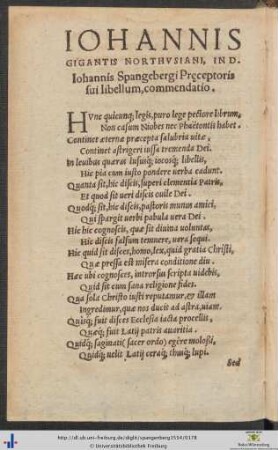 IOHANNIS
GIGANTIS NORTHVSIANI, IN D.
Iohannis Spangebergi Pręceptoris
sui libellum, commendatio.
HVnc quicunq; legis, puro lege pectore librum,
Non casum Niobes nec Phaëtontis habet.
Continet æterna præcepta salubria vitæ,
Continet astrigeri iussa tremenda Dei.
In leuibus quæras lususq; iocosq; libellis,
Hic pia cum iusto pondere uerba cadunt.
Quanta sit, hic disces, superi clementia Patris,
Et quod sit ueri discis ouile Dei.
Quodq; sit, hic disces, pastoris munus amici,
Qui spargit uerbi pabula uera Dei.
Hic hic cognosces, quæ sit diuina uoluntas,
Hic disces falsum temnere, uera sequi.
Hic quid sit disces, homo, lex, quid gratia Christi,
Quæ pressa est misera conditione diu.
Hæc ubi cognosces, introrsus scripta uidebis,
Quid sit cum sana religione fides.
Qua sola Christo iusti reputamur, & illam
Ingredimur, quæ nos ducit ad astra, uiam.
Quisq; fuit disces Ecclesiæ iacta procellis,
Quæq; fuit Latij patris auaritia.
Quidq; saginati (sacer ordo) egêre molossi,
Quidq; uelit Latij ceraq;, thusq; lupi.
Sed
http://dl.ub.uni-freiburg.de/diglit/spangenberg1554/0178
© Universitätsbibliothek Freiburg